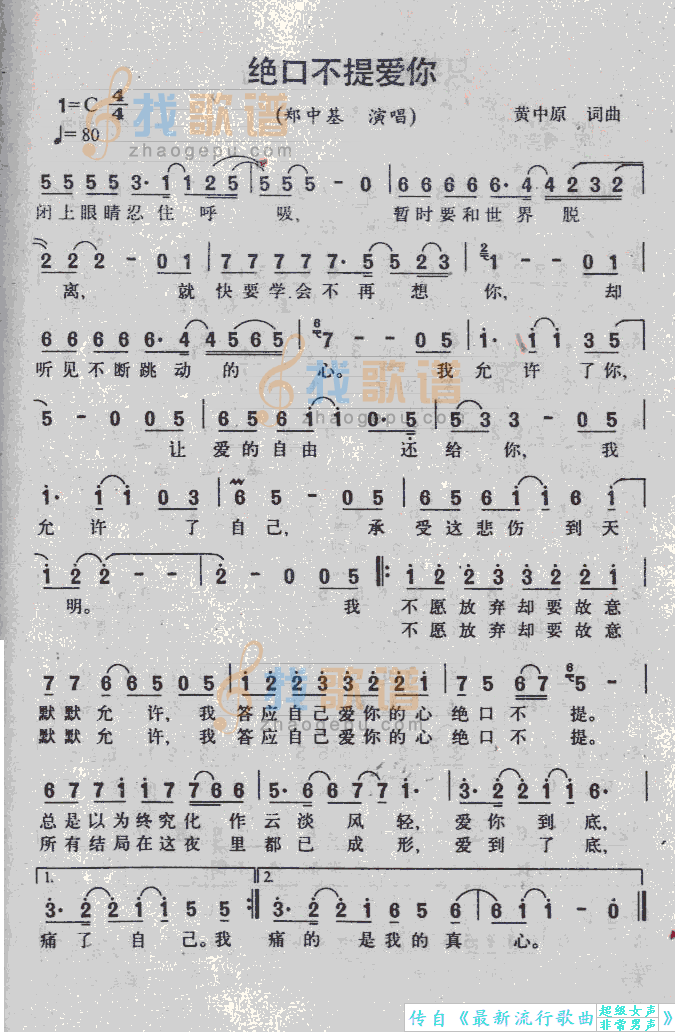 绝口不提爱你
1=C 4/4
(郑中基 演唱)
黄中原 词曲
♩=80
找歌谱
zhaogepu.com
5 5 5 5 3· 1 1 2 5 | 5 5 5 - 0 | 6 6 6 6 6 6· 4 4 2 3 2
闭上眼睛忍住呼 吸, 暂时要和世界脱
2 2 2 - - 0 1 | 7 7 7 7 7 7· 5 5 5 2 3 | 1 - - 0 1
离, 就快要学会不再想 你, 却
6 6 6 6 6· 4 4 5 6 5 | 7 - - 0 5 | 1· 1 1 3 5
听见不断跳动的 心。 我允许了你,
找歌谱
zhaogepu.com
5 - 0 0 5 | 6 5 6 1 1 0· 5 | 5 3 3 - 0 5
让 爱的自由 还给你, 我
1· 1 1 0 3 | 6 5 - 0 5 | 6 5 6 1 1 6 1
允许 了自己, 承受这悲伤到天
1 2 2 - - | 2 - 0 0 5 |: 1 2 2 3 3 2 2 1
明。 我 不愿放弃却要故意
不愿放弃却要故意
7 7 6 6 5 0 5 | 1 2 2 3 3 2 2 1 | 7 5 6 7 5 -
找歌谱
zhaogepu.com
默默允许, 我答应自己爱你的心绝口不 提。
默默允许, 我答应自己爱你的心绝口不 提。
6 7 7 1 1 7 7 6 6 | 5· 6 6 7 7 1· | 3· 2 2 1 6·
总是以为终究化 作云淡风轻, 爱你到底,
所有结局在这夜 里都已成形, 爱到了底,
1. 2.
3· 2 2 1 5 5 :| 3· 2 2 1 6 5 6 | 6 1 1 - 0 ||
痛了自己。我 痛的是我的真 心。
传自《最新流行歌曲超级女声非常男声》